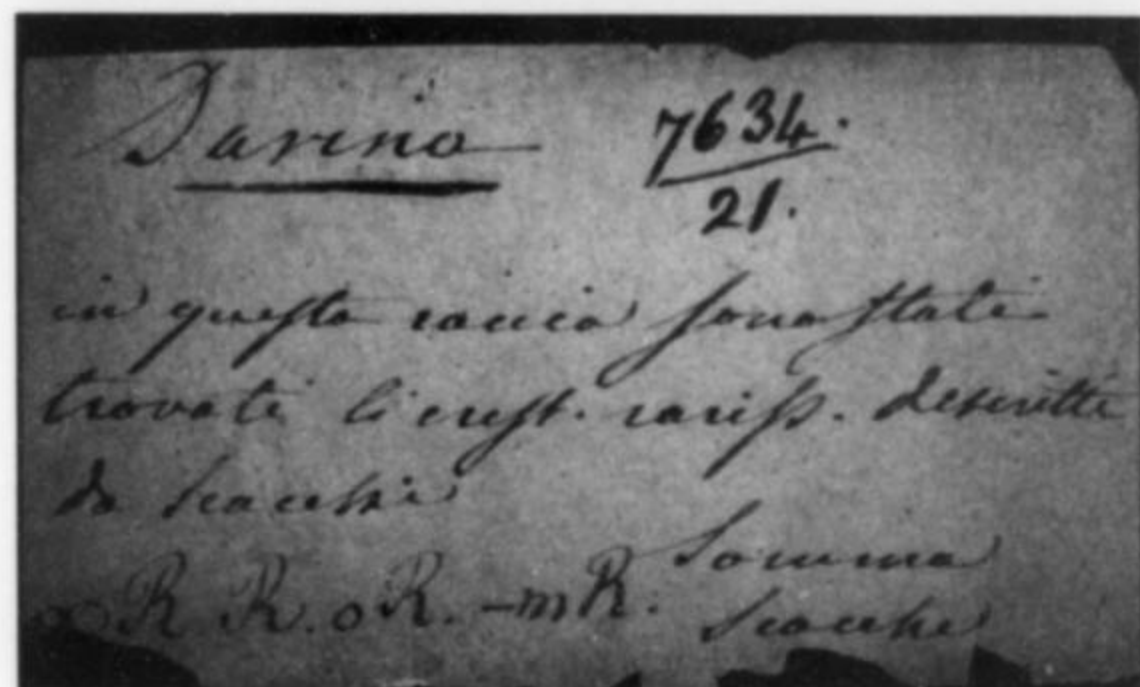 Davina 7634.
21.
in questa roccia sono stati
trovati li crist. rariss. descritti
da Scacchi
Somma
∞R R. oR. -mR.
Scacchi